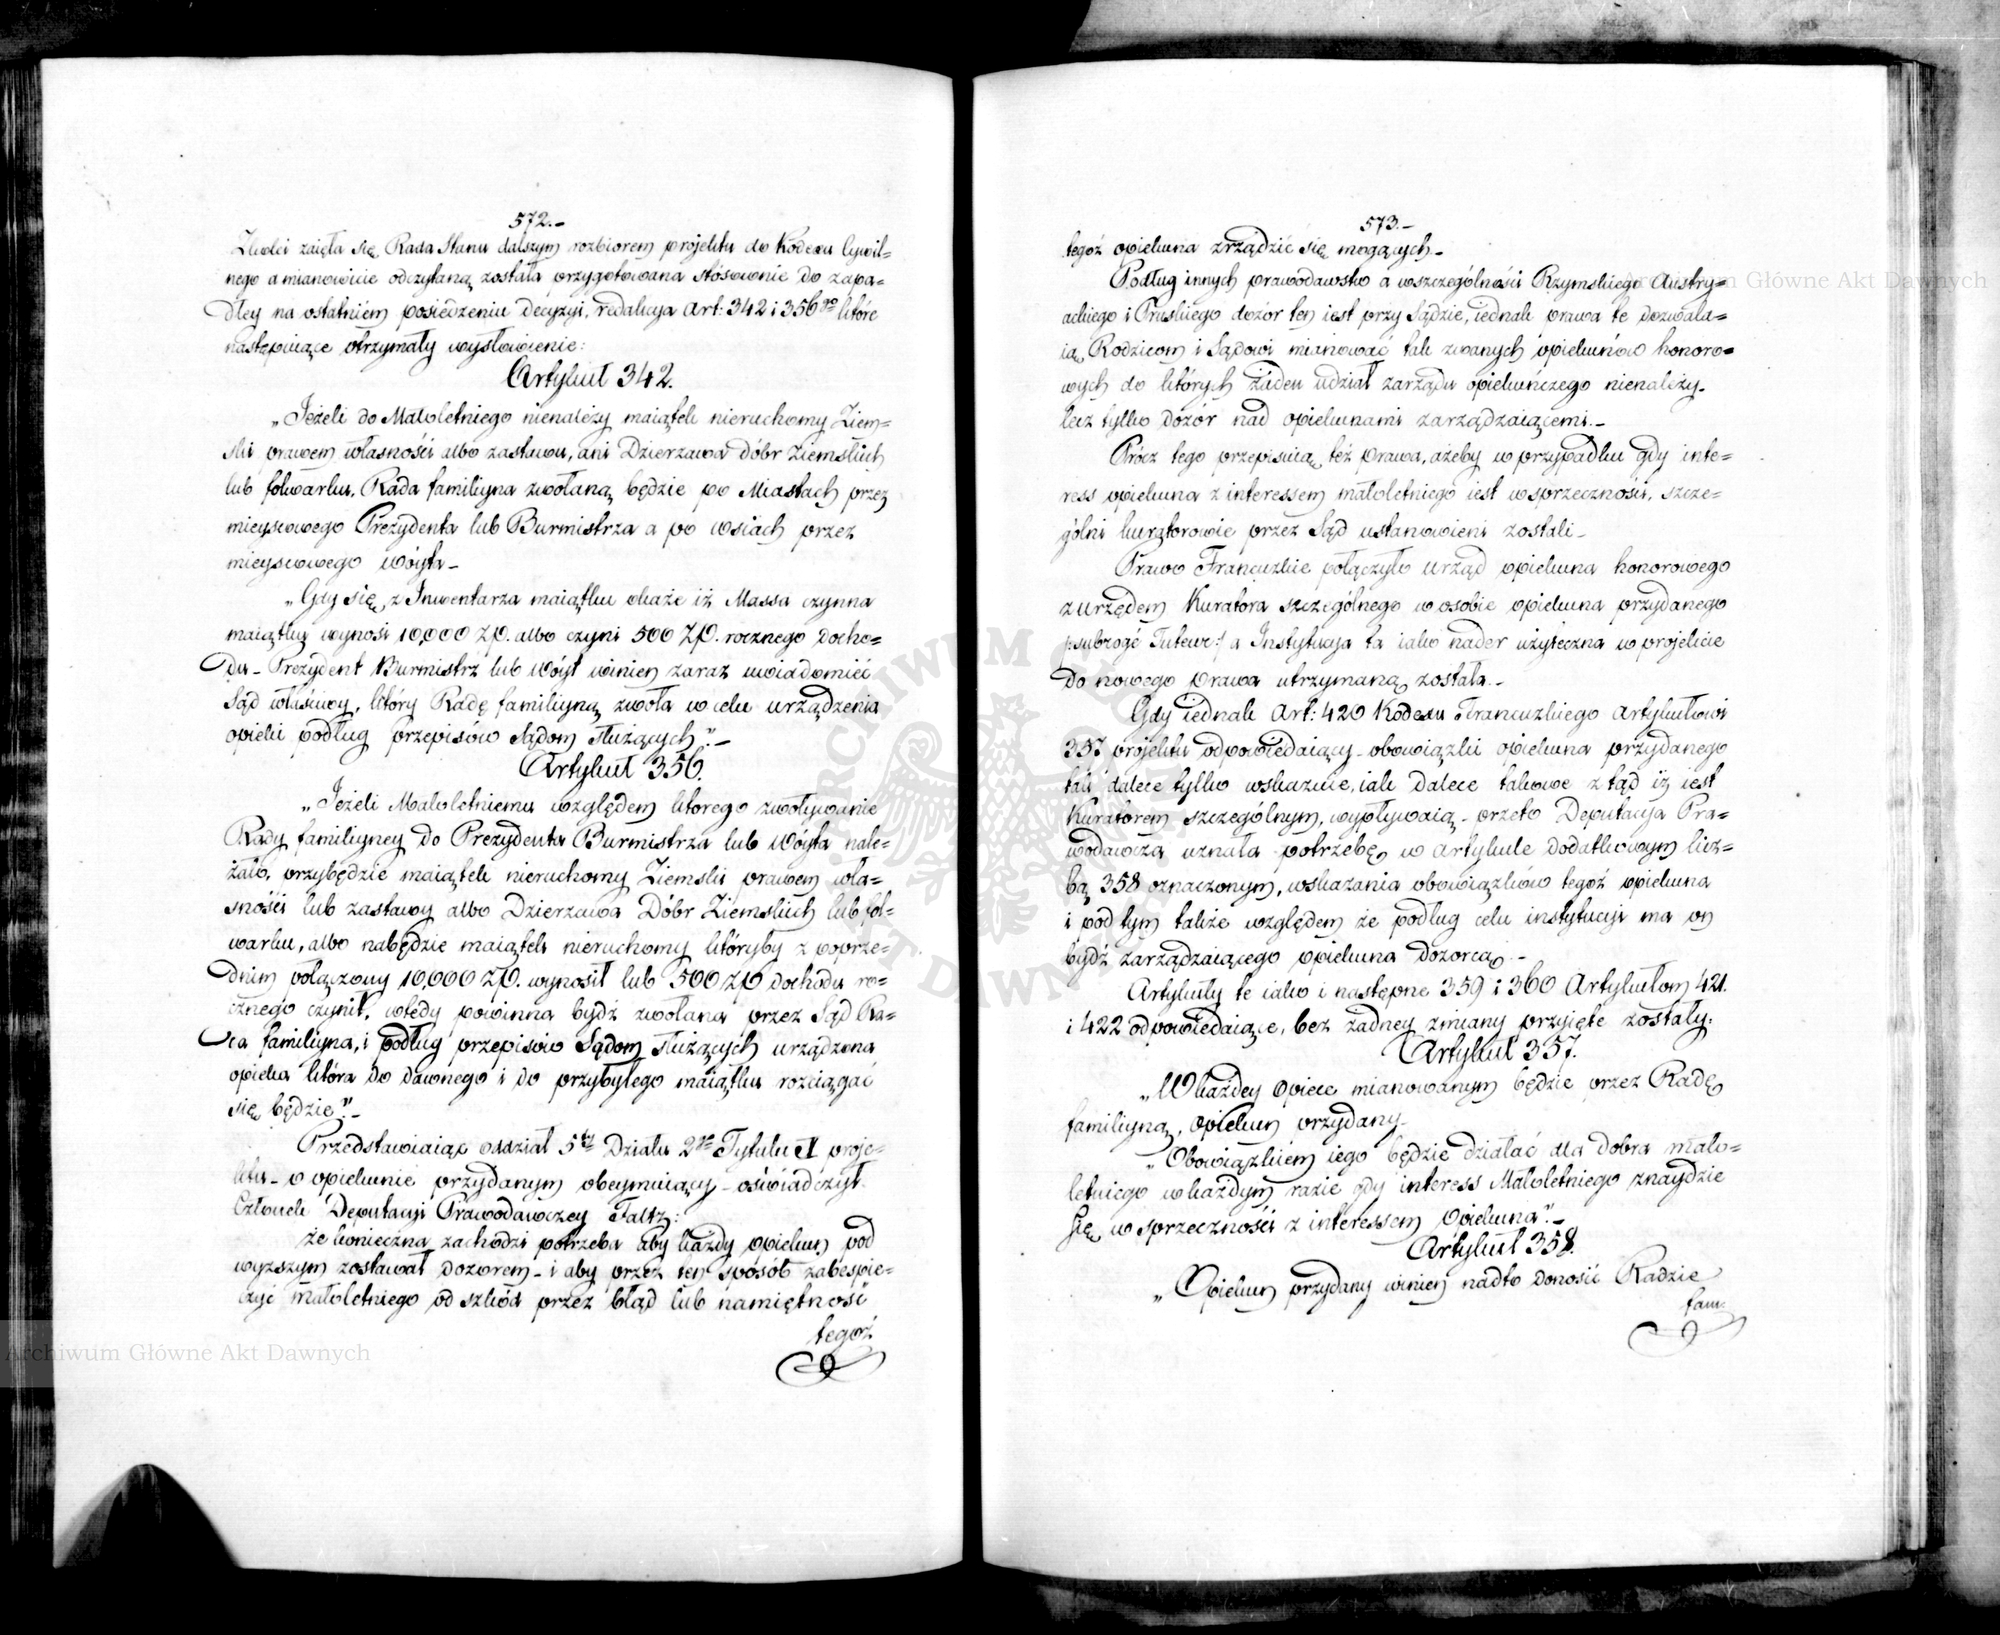 572.-
Zkolei zaięła się Rada Stanu dalszym rozbiorem projektu do Kodexu Cywil=
nego a mianowicie odczytaną została przygotowana stósownie do zapa=
dłey na ostatniém posiedzeniu decyzyi, redakcya Art: 342 i 356go które
następuiące otrzymały wysłowienie:
Artykuł 342.
„Jeżeli do Małoletniego nienależy maiątek nieruchomy Ziem=
ski prawem własności albo zastawu, ani Dzierzawa dóbr Ziemskich
lub folwarku, Rada familiyna zwołaną będzie po Miastach przez
mieyscowego Prezydenta lub Burmistrza a po wsiach przez
mieyscowego Wóyta_
„Gdy się z Inwentarza maiątku okaże iż Massa czynna
maiątku wynosi 10,000 Zp. albo czyni 500 Zp. rocznego docho=
du_ Prezydent Burmistrz lub Wóyt winien zaraz uwiadomić
Sąd właściwy, który Radę familiyną zwoła w celu urządzenia
opieki podług przepisów Sądom służących"._
Artykuł 356.
„Jeżeli Małoletniemu względem którego zwoływanie
Rady familiyney do Prezydenta Burmistrza lub Wóyta nale=
żało, przybędzie maiątek nieruchomy Ziemski prawem wła=
sności lub zastawy albo Dzierzawa Dóbr Ziemskich lub fol=
warku, albo nabędzie maiątek nieruchomy któryby z poprze=
dnim połączony 10,000 Zp. wynosił lub 500 Zp dochodu ro=
cznego czynił, wtedy powinna bydź zwołana przez Sąd Ra=
da familiyna, i podług przepisów Sądom służących urządzona
opieka która do dawnego i do przybyłego maiątku rozciągać
się będzie"._
Przedstawiaiąc oddział 5ty Działu 2go Tytułu proje=
ktu_ o opiekunie przydanym obeymuiący_ oświadczył
Członek Deputacyi Prawodawczey Faltz:
że konieczna zachodzi potrzeba aby każdy opiekun pod
wyższym zostawał dozorem_ i aby przez ten sposób zabespie=
czyć małoletniego od szkód przez błąd lub namiętność
tegoż
573.-
tegoż opiekuna zrządzić się mogących_
Podług innych prawodawstw a wszczególności Rzymskiego Austry=
ackiego i Pruskiego dozór ten iest przy Sądzie, iednak prawa te dozwala=
ią Rodzicom i Sądowi mianować tak zwanych opiekunów honoro=
wych do których żaden udział zarządu opiekuńczego nienależy_
lecz tylko dozór nad opiekunami zarządzaiącemi._
Prócz tego przepisuią też prawa, ażeby w przypadku gdy inte=
ress opiekuna z interessem małoletniego iest w sprzeczności, szcze=
gólni kuratorowie przez Sąd ustanowieni zostali_
Prawo Francuzkie połączyło urząd opiekuna honorowego
z urzędem Kuratora szczególnego w osobie opiekuna przydanego
/:subrogé Tuteur:/ a Instytucya ta iako nader użyteczna w projekcie
do nowego prawa utrzymaną została._
Gdy iednak Art: 420 Kodexu Francuzkiego Artykułowi
357 projektu odpowiedaiący_ obowiązki opiekuna przydanego
tak dalece tylko wskazuie, iak dalece takowe z tąd iż iest
Kuratorem szczególnym, wypływaią_ przeto Deputacya Pra=
wodawcza uznała potrzebę w artykule dodatkowym licz=
bą 358 oznaczonym, wskazania obowiązków tegoż opiekuna
i pod tym także względem że podług celu instytucyi ma on
bydź zarządzaiącego opiekuna dozorcą._
Artykuły te iako i następne 359 i 360 Artykułom 421.
i 422 odpowiedaiące, bez żadney zmiany przyięte zostały:
Artykuł 357.
„W każdey Opiece mianowanym będzie przez Radę
familiyną, opiekun przydany_
„Obowiązkiem iego będzie działać dla dobra mało=
letniego w każdym razie gdy interess Małoletniego znaydzie
się w sprzeczności z interessem Opiekuna"._
Artykuł 358.
„Opiekun przydany winien nadto donosić Radzie
fam:
Archiwum Główne Akt Dawnych
Archiwum Główne Akt Dawnych
ARCHIWUM GŁÓWNE AKT DAWNYCH